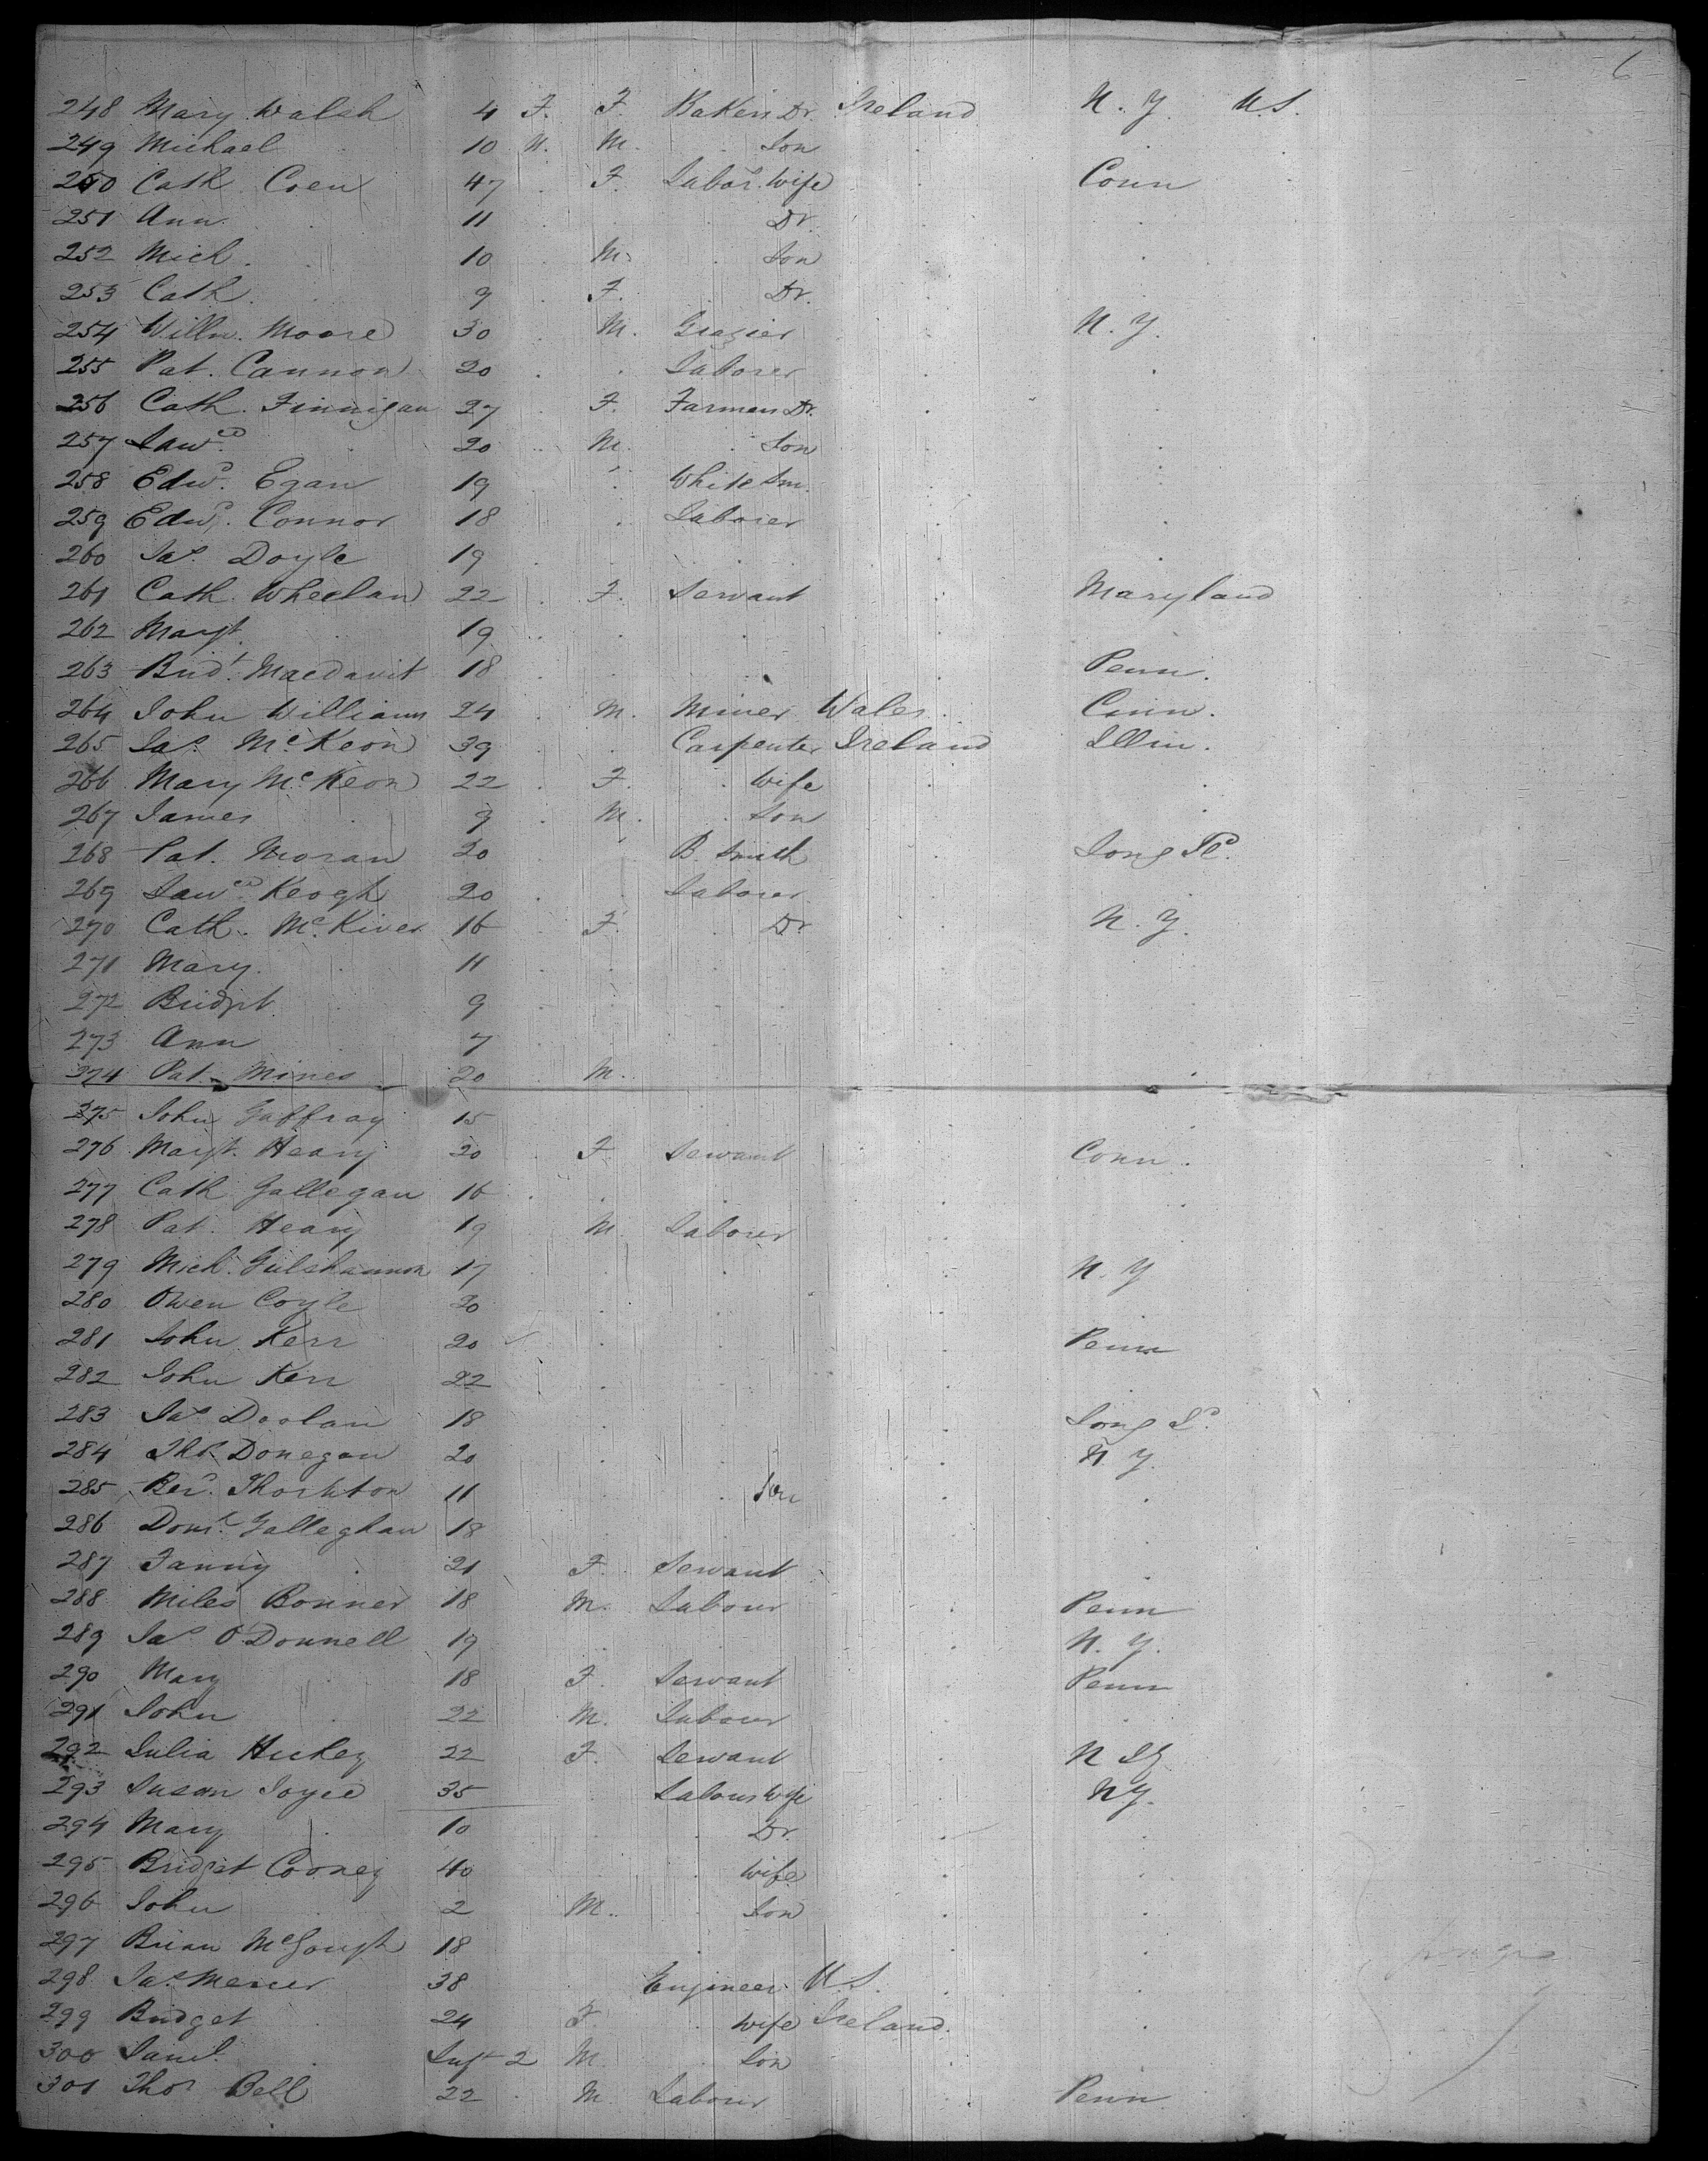 6
248 Mary Walsh 4 F. F. Bakers Dr. Ireland N. Y. U.S.
249 Michael 10 M. Son
250 Cath. Coen 47 F. Labor. Wife Conn
251 Ann 11 Dr.
252 Mich. 10 M. Son
253 Cath. 9 F. Dr.
254 Willm. Moore 30 M. Grazier N. Y.
255 Pat. Cannon 20 Laborer
256 Cath. Finnigan 27 F. Farmers Dr.
257 Lawce 20 M. Son
258 Edwd. Egan 19 White Sm.
259 Edwd. Connor 18 Laborer
260 Jas. Doyle 19
261 Cath. Wheelan 22 F. Servant Maryland
262 Margt. 19
263 Bridt. Macdavit 18 Penn.
264 John Williams 24 M. Miner Wales
265 Jas. McKeon 39 Carpenter Ireland Illin.
266 Mary McKeon 22 F. Wife
267 James 9 M. Son
268 Pat. Moran 20 B. Smith Long Id.
269 Lawce Keogh 20 Laborer
270 Cath. McKiver 16 F. Dr. N. Y.
271 Mary 11
272 Bridgt 9
273 Ann 7
274 Pat. Mines 20 M.
275 John Gaffray 15
276 Margt. Heany 20 F. Servant Conn.
277 Cath Gallegan 16
278 Pat. Heany 19 M. Laborer
279 Mich. 17 N. Y
280 Owen Coyle 20
281 John Kerr 20 Penn
282 John Kerr 22
283 Jas Doolan 18 Long Id.
284 Ths Donegan 20 N. Y.
285 Thornton 11 Son
286 Doml. Gallaghan 18
287 Fanny 21 F. Servant
288 Miles Bonner 18 M. Labour Penn
289 Jas O'Donnell 19 N. Y.
290 Mary 18 F. Servant Penn
291 John 22 M. Labour
292 Julia Hickey 22 F. Servant N
293 Susan Joyce 35 Labour Wife N Y.
294 Mary 10 Dr.
295 Bridget Cooney 40 Wife
296 John 2 M. Son
297 Brian McGough 18
298 Jas. Mercer 38 Engineer U. S.
299 Bridget 24 F. Wife Ireland.
300 Saml. Inft 2 M. Son
301 Thos Bell 22 M Labour Penn